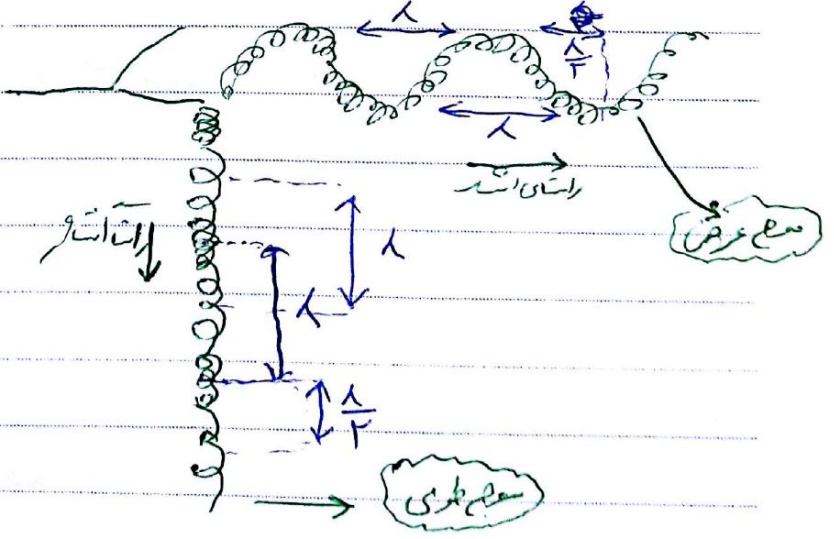 λ
λ/۲
λ
راستای انتشار
موج عرضی
راستای انتشار
λ
λ
λ/۲
موج طولی